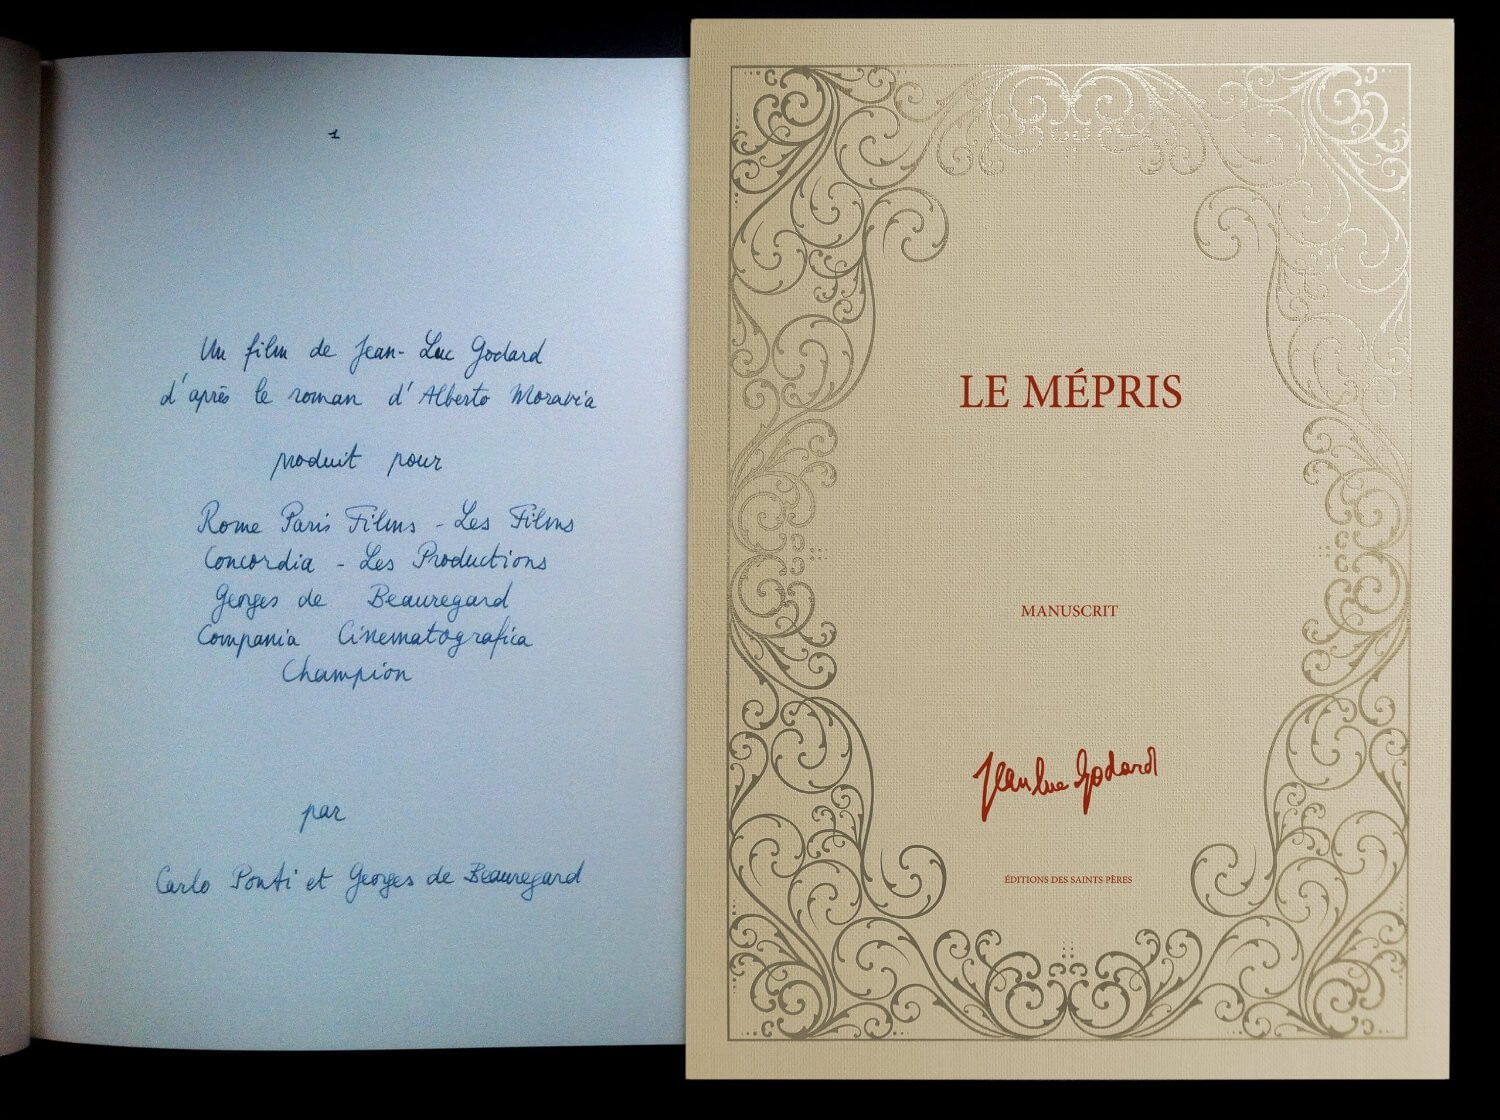 1
Un film de Jean-Luc Godard
d'après le roman d'Alberto Moravia
produit pour
Rome Paris Films - Les Films
Concordia - Les Productions
Georges de Beauregard
Compania Cinematografica
Champion
par
Carlo Ponti et Georges de Beauregard
LE MÉPRIS
MANUSCRIT
Jean Luc Godard
ÉDITIONS DES SAINTS PÈRES